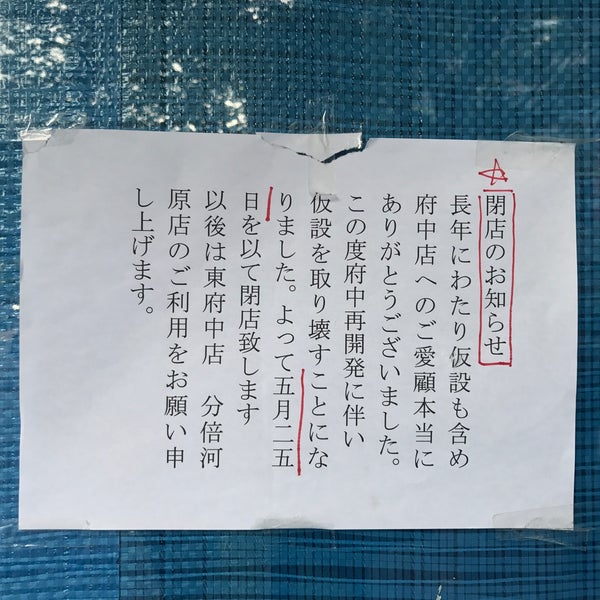 閉店のお知らせ
長年にわたり仮設も含め
府中店へのご愛顧本当に
ありがとうございました。
この度府中再開発に伴い
仮設を取り壊すことにな
りました。よって五月二五
日を以て閉店致します
以後は東府中店　分倍河
原店のご利用をお願い申
し上げます。